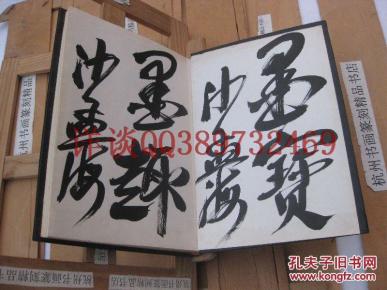 墨寶
沙孟海
墨趣
沙孟海
详谈QQ389732469
杭州书画篆刻精品书店
杭州书画篆刻精品书店
孔夫子旧书网